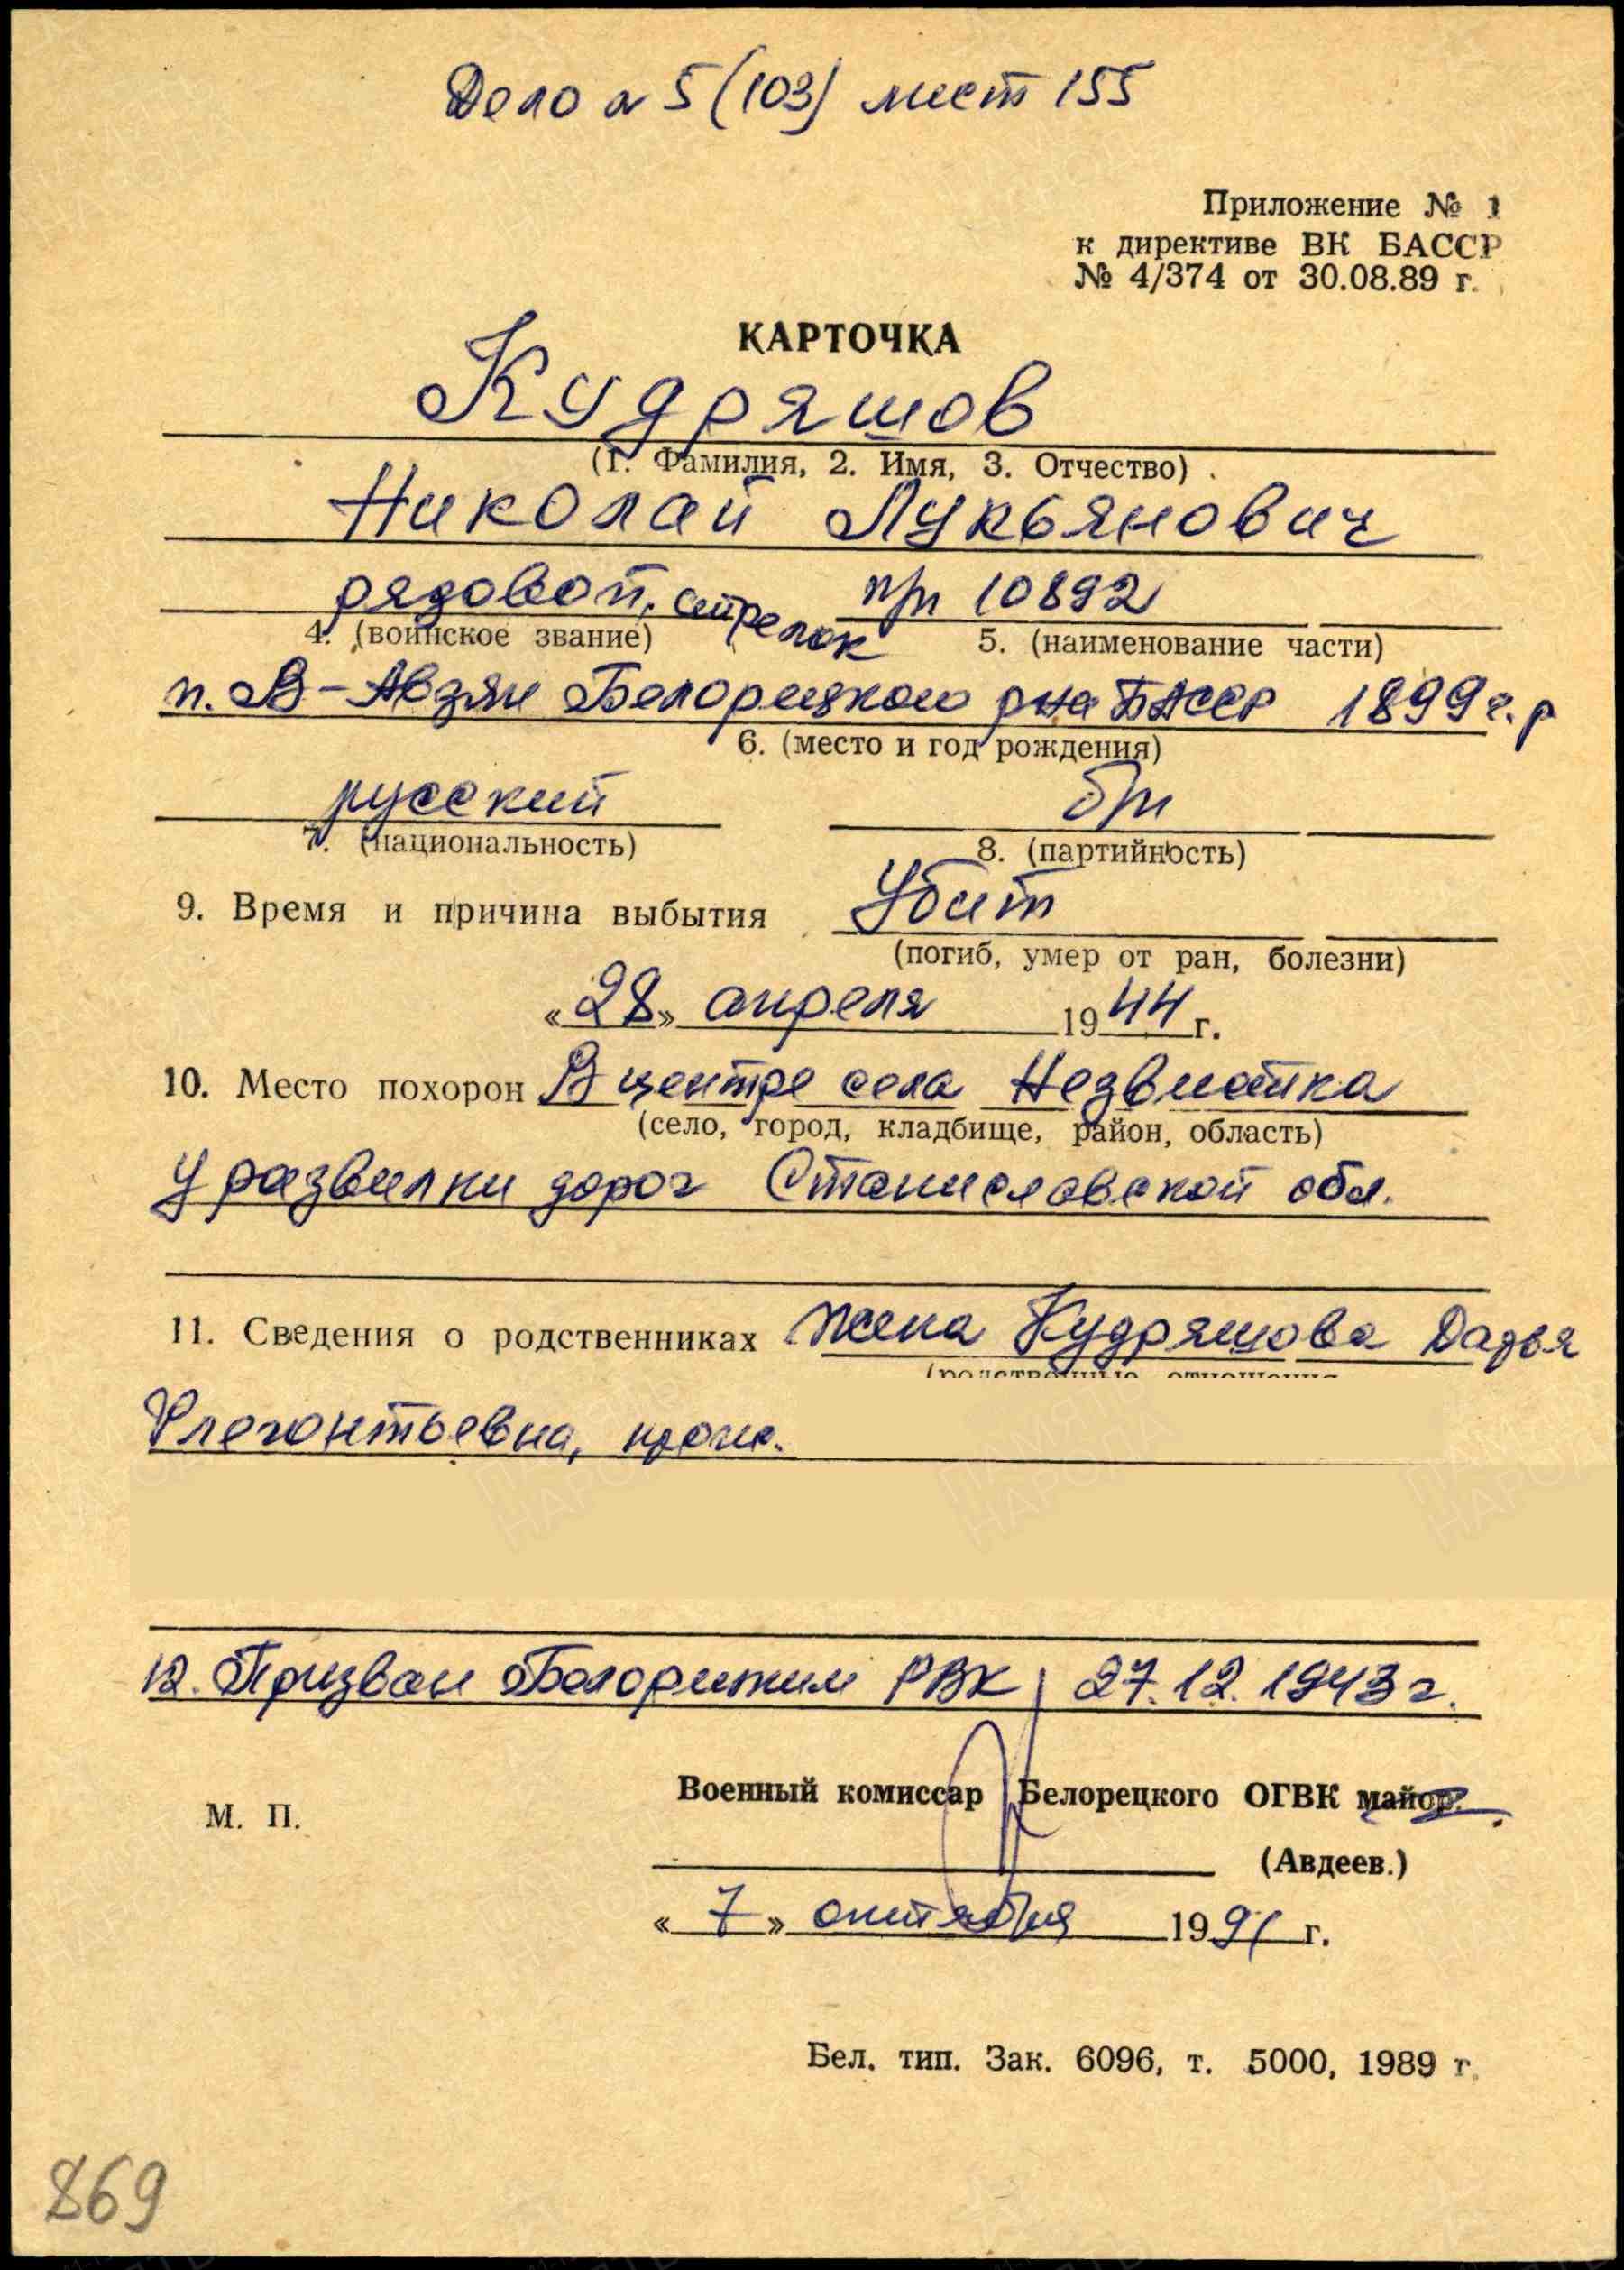 Дело № 5 (103) лист 155
Приложение № 1
к директиве ВК БАССР
№ 4/374 от 30.08.89 г.
КАРТОЧКА
Кудряшов
(1. Фамилия, 2. Имя, 3. Отчество)
Николай Лукьянович
рядовой, стрелок п/п 10892
4. (воинское звание) 5. (наименование части)
п. В-Авзян Белорецкого р-на БАССР 1899 г.р
6. (место и год рождения)
русский б/п
7. (национальность) 8. (партийность)
9. Время и причина выбытия Убит
(погиб, умер от ран, болезни)
«28» апреля 1944 г.
10. Место похорон В центре села Незвистка
(село, город, кладбище, район, область)
У развилки дорог Станиславской обл.
11. Сведения о родственниках жена Кудряшова Дарья
(родственные отношения
Флегонтьевна, прож.
12. Призван Белорецким РВК 27.12.1943 г.
Военный комиссар Белорецкого ОГВК майор.
М. П.
(Авдеев.)
«7» октября 1991 г.
Бел. тип. Зак. 6096, т. 5000, 1989 г.
869